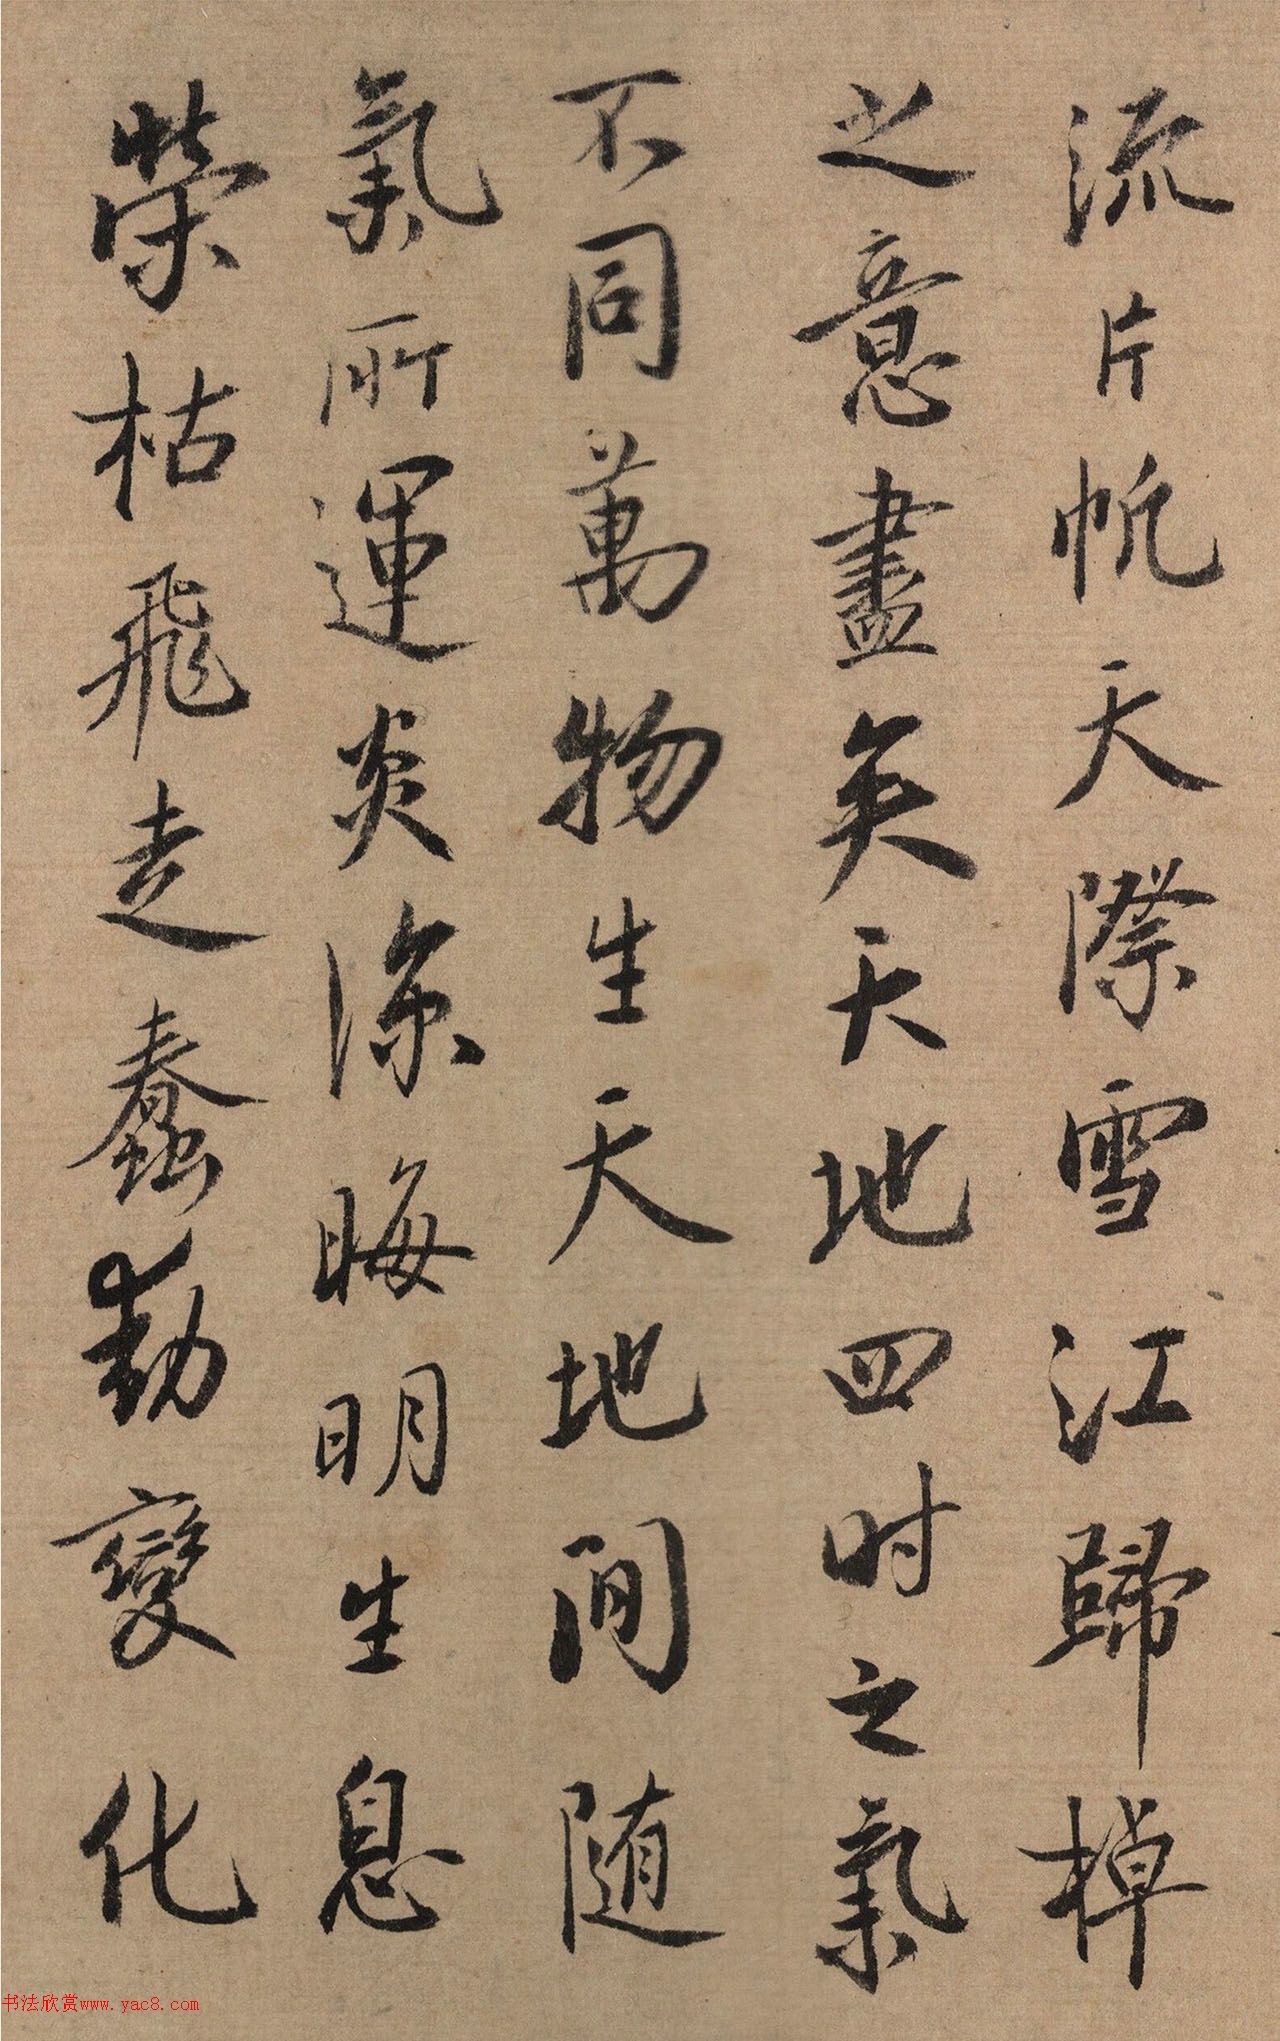 流片帆天際雪江歸棹
之意盡矣天地四时之氣
不同萬物生天地間随
氣所運炎涼晦明生息
榮枯飛走蠢動變化
书法欣赏www.yac8.com